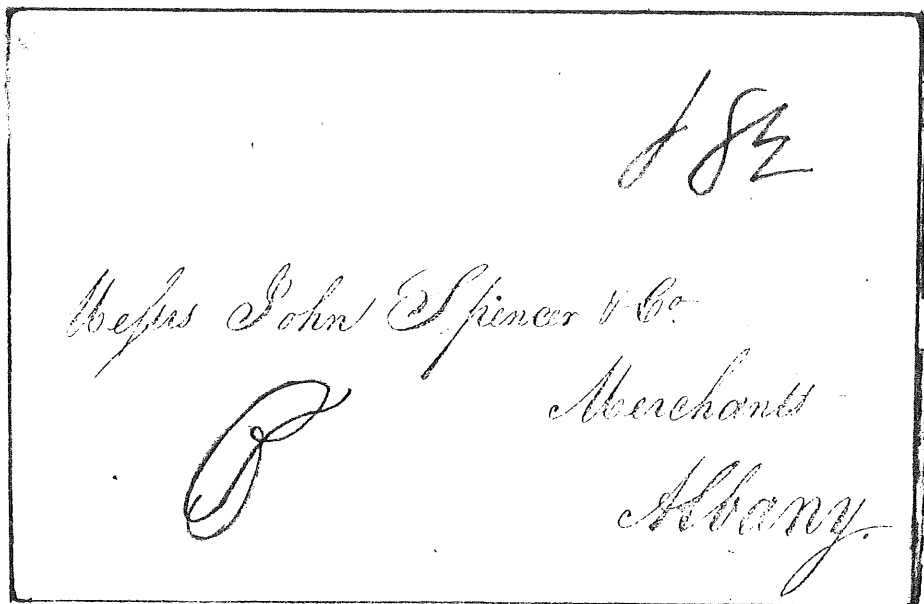 Messrs John Spencer & Co
Merchants
Albany.